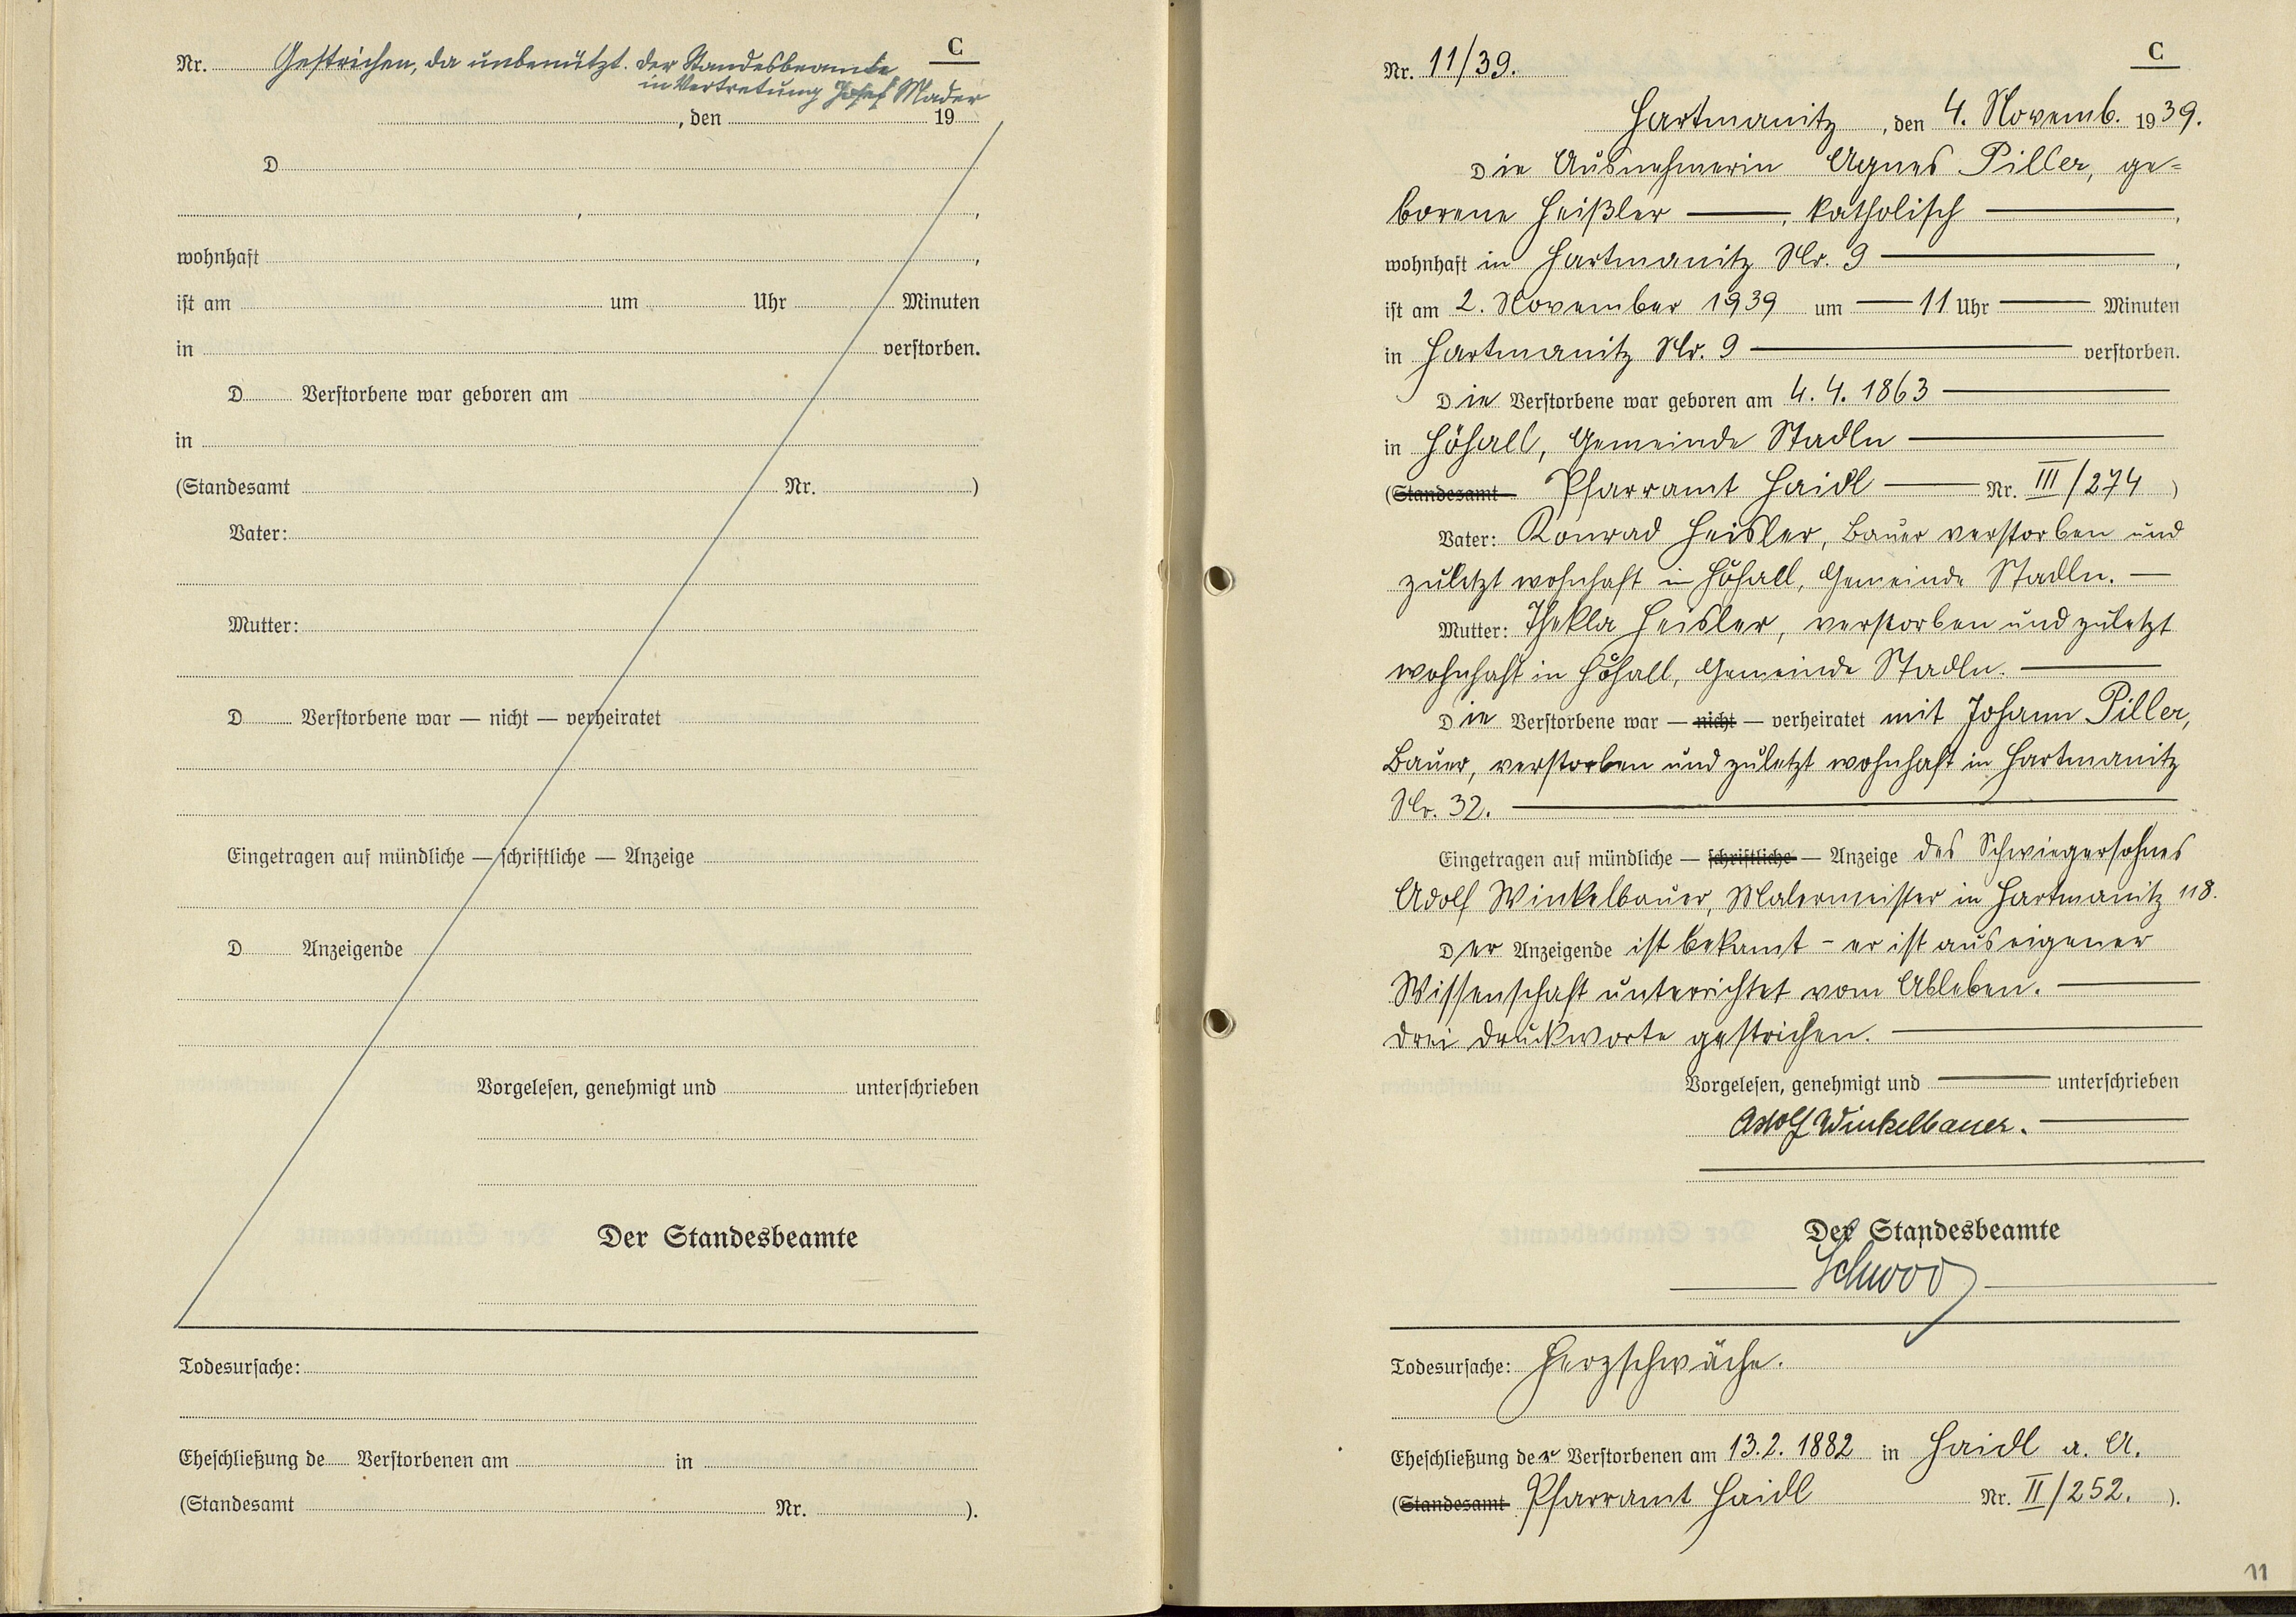 C
Nr. Gestrichen, da unbenützt. der Standesbeamte
in Vertretung Josef Mader
, den 19
D
,
wohnhaft ,
ist am um Uhr Minuten
in verstorben.
D Verstorbene war geboren am
in
(Standesamt Nr. )
Vater:
Mutter:
D Verstorbene war — nicht — verheiratet
Eingetragen auf mündliche — schriftliche — Anzeige
D Anzeigende
Vorgelesen, genehmigt und unterschrieben
Der Standesbeamte
Todesursache:
Eheschließung de Verstorbenen am in
(Standesamt Nr. ).
C
Nr. 11/39.
Hartmanitz, den 4. Novemb. 1939.
Die Ausnehmerin Agnes Piller, ge=
borene Heißler —, katholisch —,
wohnhaft in Hartmanitz Nr. 9 —,
ist am 2. November 1939 um — 11 Uhr — Minuten
in Hartmanitz Nr. 9 — verstorben.
Die Verstorbene war geboren am 4.4.1863 —
in Höhall, Gemeinde Stadln —
(Standesamt Pfarramt Haidl — Nr. III/274 )
Vater: Konrad Heisler, Bauer verstorben und
zuletzt wohnhaft in Höhall, Gemeinde Stadln. —
Mutter: Thekla Heisler, verstorben und zuletzt
wohnhaft in Höhall, Gemeinde Stadln. —
Die Verstorbene war — nicht — verheiratet mit Johann Piller,
Bauer, verstorben und zuletzt wohnhaft in Hartmanitz
Nr. 32. —
Eingetragen auf mündliche — schriftliche — Anzeige des Schwiegersohnes
Adolf Winkelbauer, Malermeister in Hartmanitz 118.
Der Anzeigende ist bekamt - er ist aus eigener
Wissenschaft unterrichtet vom Ableben. —
Drei Druckworte gestrichen. —
Vorgelesen, genehmigt und — unterschrieben
Adolf Winkelbauer. —
Der Standesbeamte
Todesursache: Herzschwäche.
Eheschließung der Verstorbenen am 13.2.1882 in Haidl a. A.
(Standesamt Pfarramt Haidl Nr. II/252. ).
11